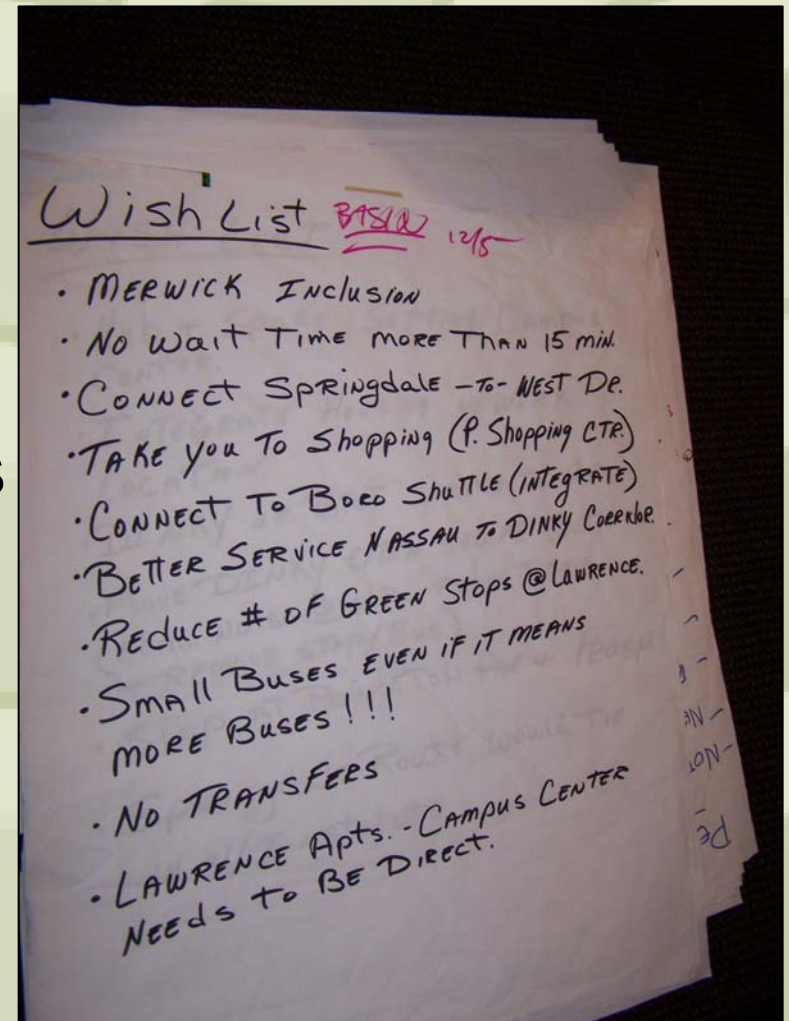 Wish List 12/5
• MERWICK INCLUSION
• NO WAIT TIME MORE THAN 15 MIN.
• CONNECT SPRINGDALE -TO- WEST DR.
• TAKE YOU TO SHOPPING (P. SHOPPING CTR.)
• CONNECT TO BORO SHUTTLE (INTEGRATE)
• BETTER SERVICE NASSAU TO DINKY CORRIDOR.
• REDUCE # OF GREEN STOPS @ LAWRENCE.
• SMALL BUSES EVEN IF IT MEANS
MORE BUSES!!!
• NO TRANSFERS
• LAWRENCE APTS. - CAMPUS CENTER
NEEDS TO BE DIRECT.